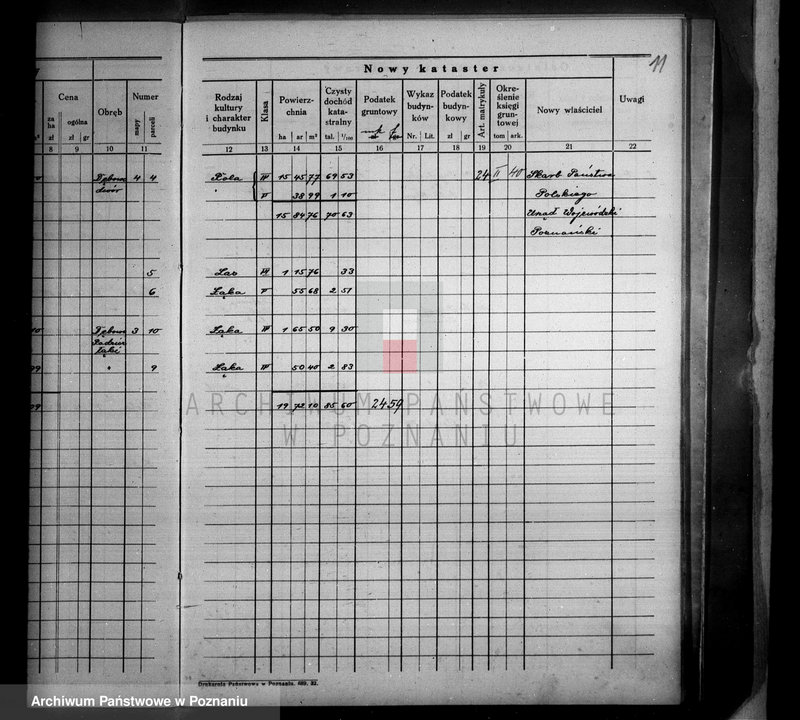 11
Nowy kataster
Cena
Obręb
Numer
za ha
ogólna
mapy
parceli
zł
zł gr
8 9 10 11
Rodzaj kultury i charakter budynku
Klasa
Powierzchnia
Czysty dochód katastralny
Podatek gruntowy
Wykaz budynków
Podatek budynkowy
Art. matrykuły
Określenie księgi gruntowej
Nowy właściciel
Uwagi
ha ar m²
tal. 1/100
Nr. Lit.
zł gr
tom ark.
12 13 14 15 16 17 18 19 20 21 22
4 4 Rola III 15 45 77 69 53 24 II 40 Skarb Państwa
dwór V 38 99 1 10 Polskiego
15 84 76 70 63 Urząd Wojewódzki
Poznański
5 Las VII 1 15 76 33
6 Łąka V 55 68 2 51
3 10 Łąka III 1 65 50 9 30
9 Łąka III 50 40 2 83
19 72 10 85 60 24 59
ARCHIWUM PAŃSTWOWE
W POZNANIU
Drukarnia Państwowa w Poznaniu. 489. 32.
Archiwum Państwowe w Poznaniu